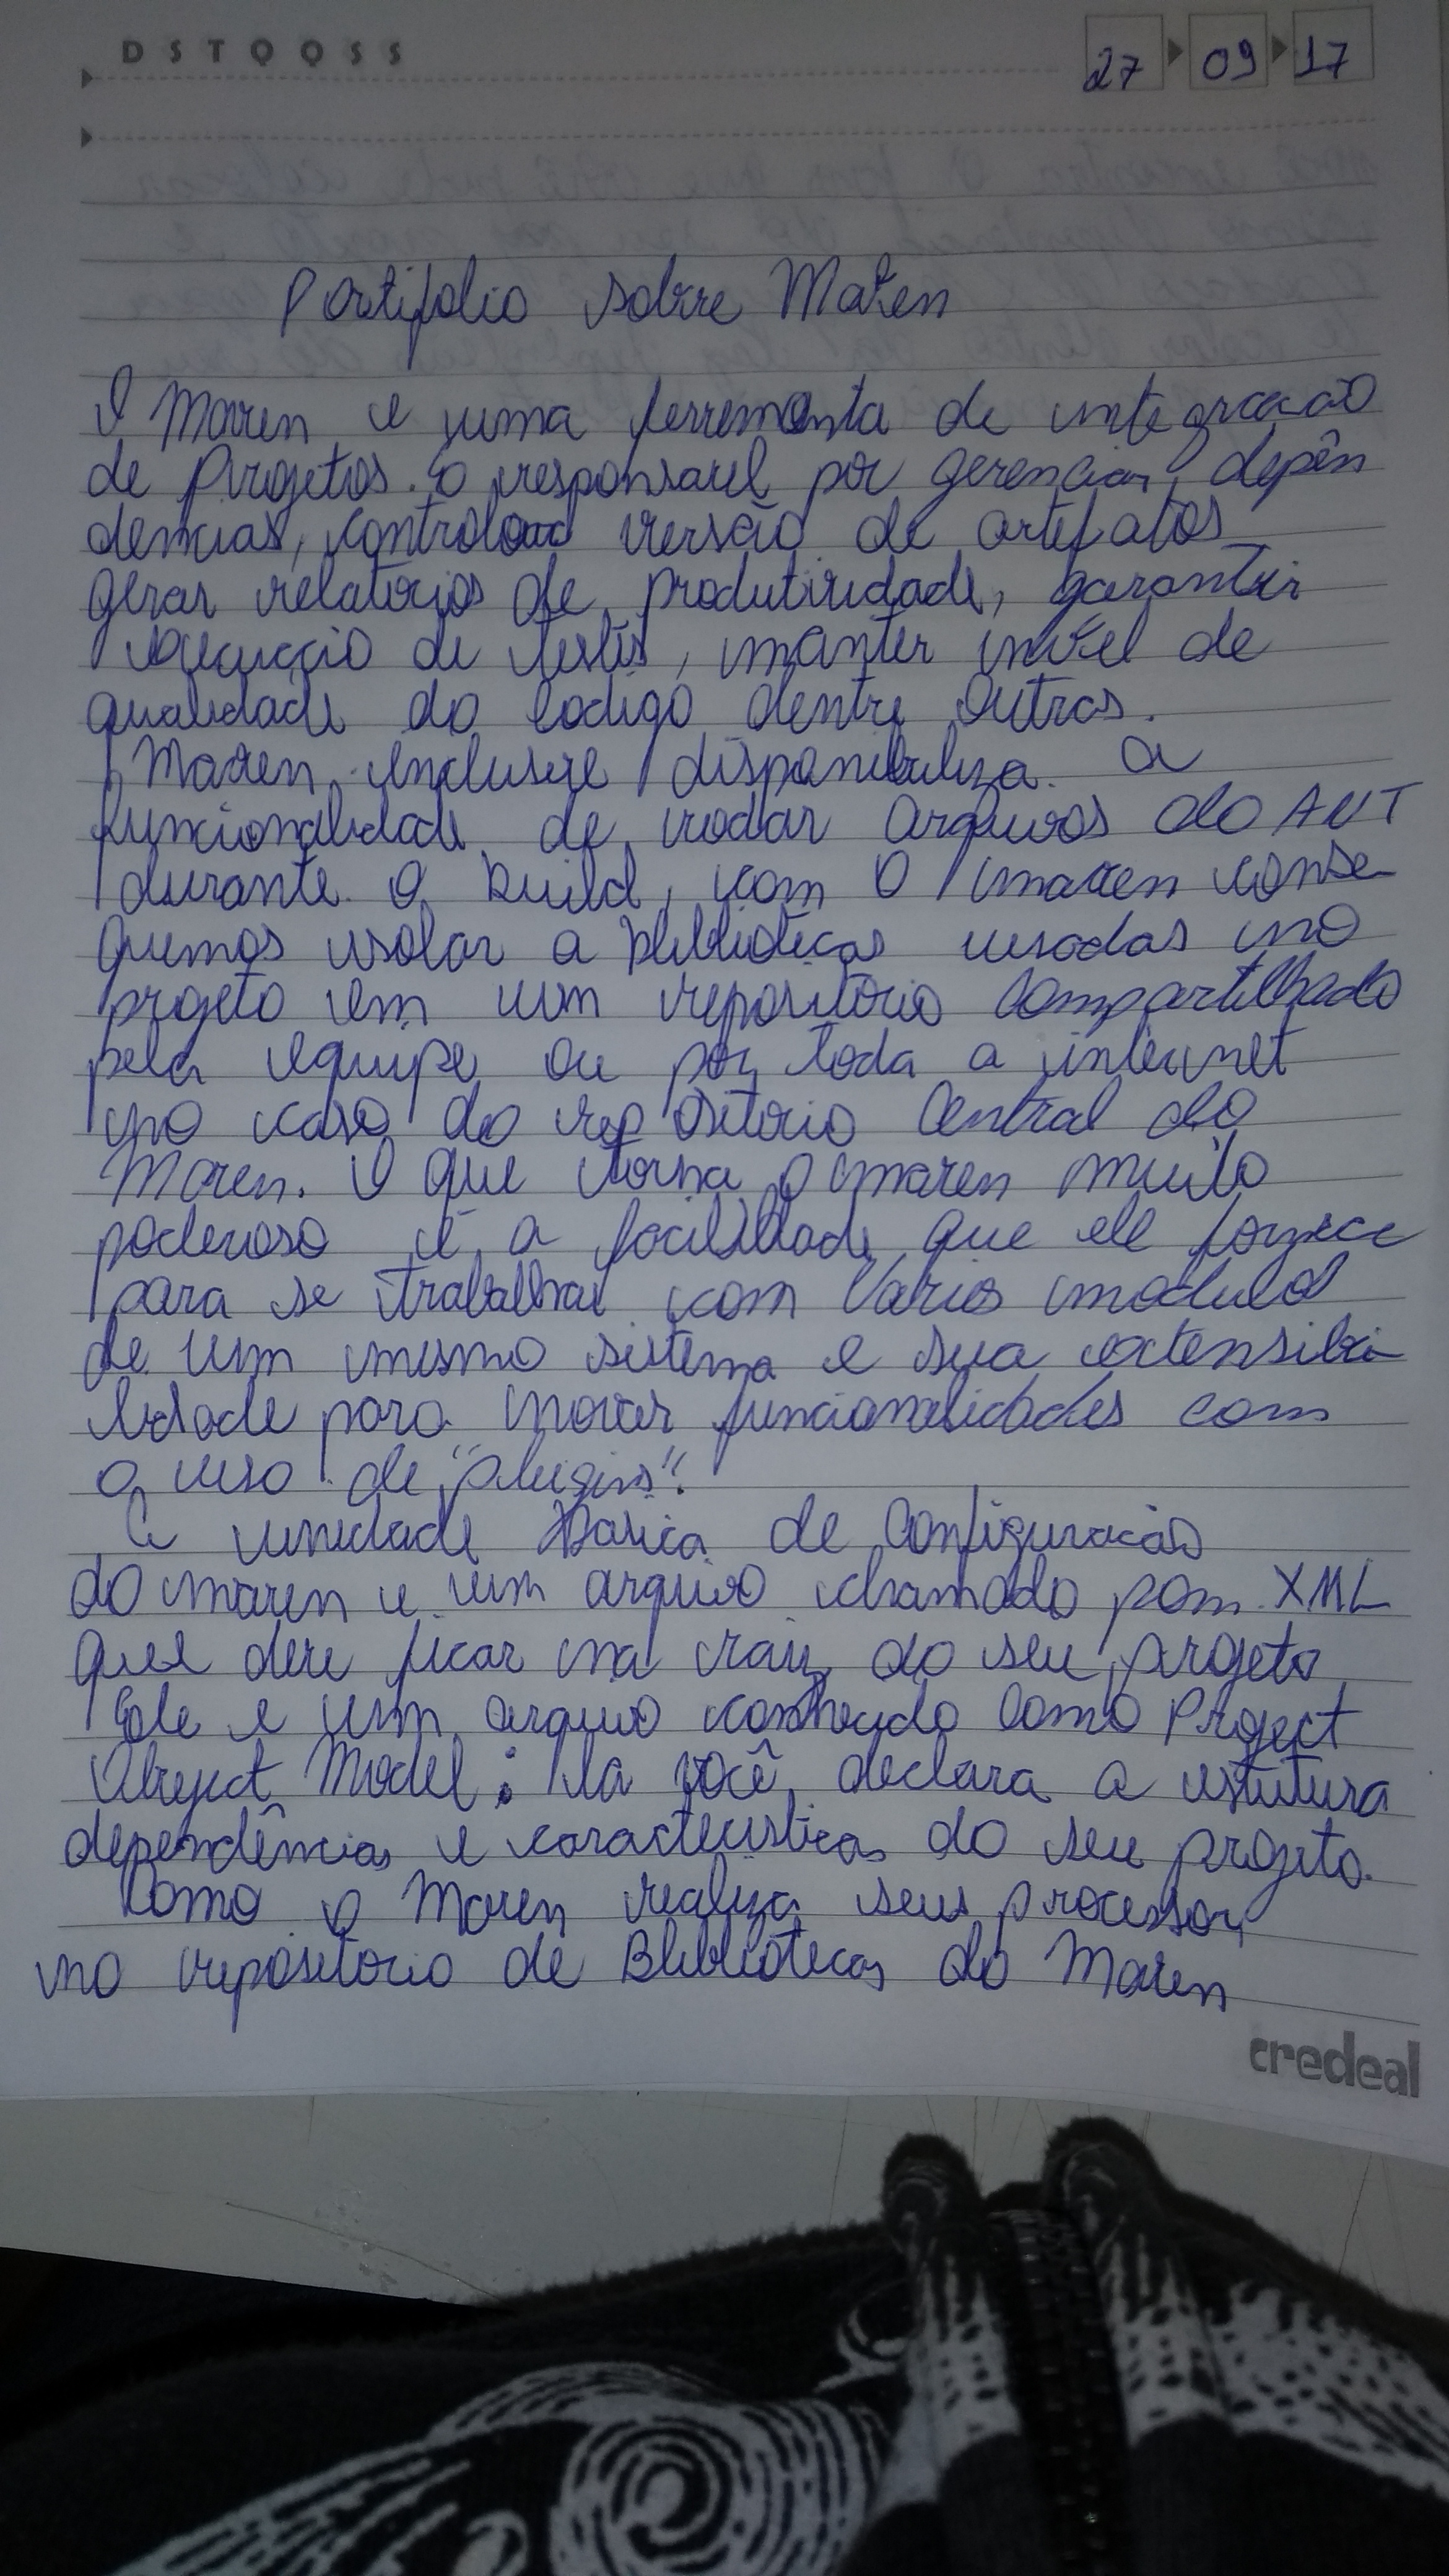 D S T Q Q S S
27 09 17
Portifolio sobre Maven
O Maven e uma ferramenta de integracao
de Projetos. E responsavel por gerenciar depên
dencias, controlar versão de artefatos
gerar relatorios de produtividade, garantir
execucção de testes, manter nivel de
qualidade do codigo dentre outras.
Maven inclusive disponibiliza a
funcionalidade de rodar arquivos do ANT
durante o build, com o maven conse
guimos isolar a bibliotecas usadas no
projeto em um repositório compartilhado
pela equipe ou por toda a internet
no caso do repositorio Central do
Maven. O que torna o maven muito
poderoso é a facilidade que ele fornece
para se trabalhar com Varios modulos
de um mesmo sistema e sua extensibi
lidade para novas funcionalidades com
o uso de "plugins".
A unidade Basica de Configuração
do maven e um arquivo chamado pom.XML
que deve ficar na raiz do seu projeto
Ele e um arquivo conhecido como Project
Object Model: la você declara a estutura
dependência e caracteristicas do seu projeto.
Como o Maven realiza seus processos,
no repositorio de Bibliotecas do Maven
credeal